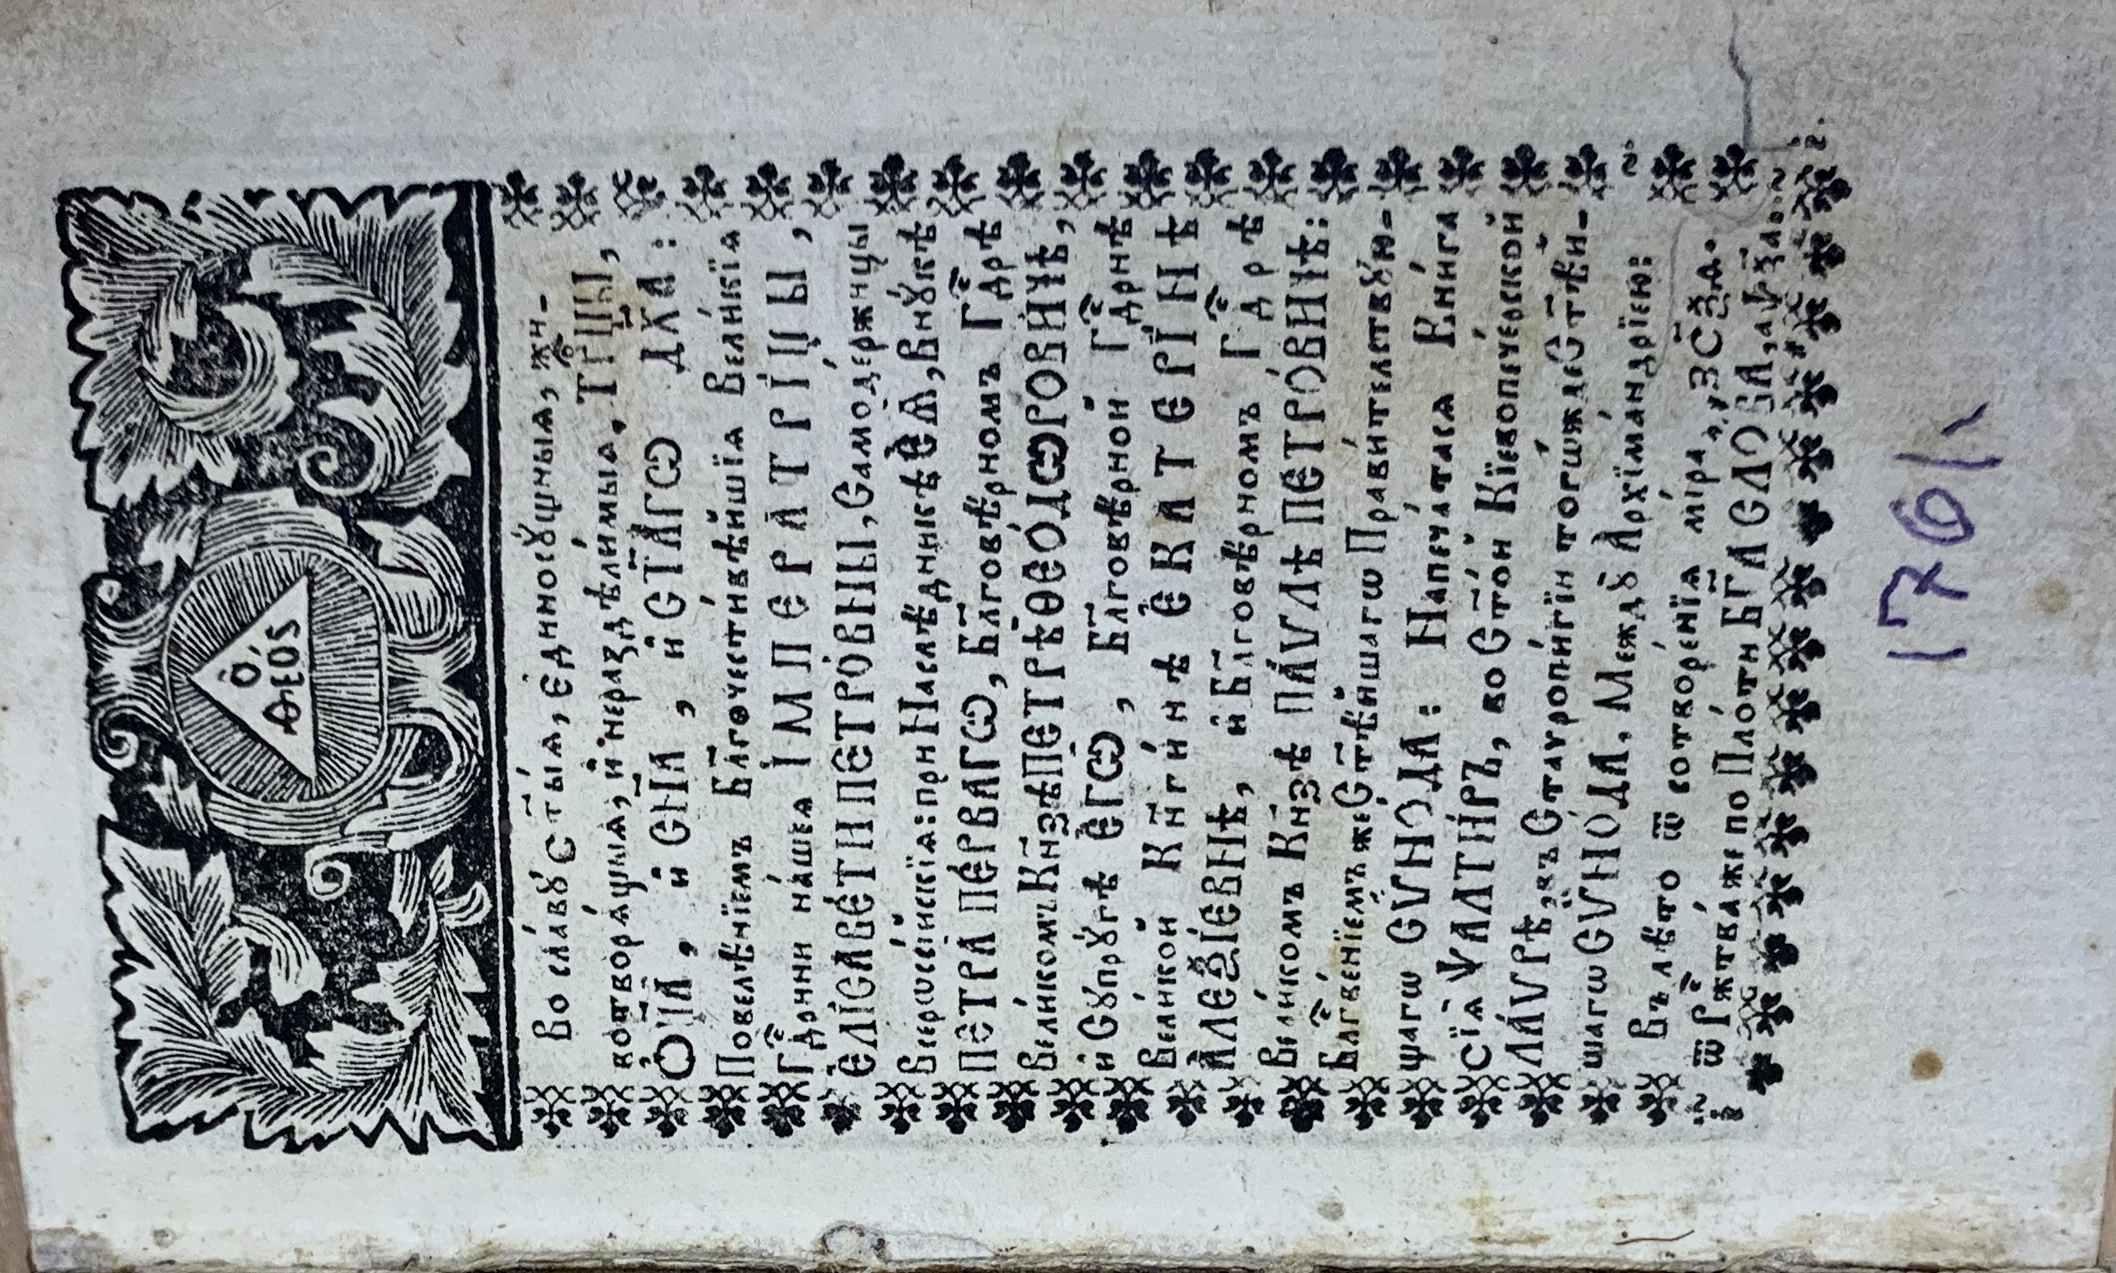 Ὁ
ΘΕΟΣ
Во сла́вꙋ Ст҃ы́ѧ, є҆дїносꙋ́щныѧ, жи-
вотворѧ́щыѧ, и҆ нераздѣли́мыѧ, ТР҃ЦЫ,
Ѻ҆Ц҃А̀, и҆ СН҃А, и҆ СТ҃А́ГѠ ДХ҃А:
Повелѣ́нїемъ Бл҃гочести́вѣйшїѧ Вели́кїѧ
Гдⷭ҇рни на́шеѧ ІМПЕРАТРІ́ЦЫ,
ЄЛІСАВЕ́ТИ ПЕТРО́ВНЫ, Самоде́ржицы
Всерѡссі́йскїѧ: при Наслѣ́дникѣ Є҆Ѧ̀, Внꙋ́кѣ
ПЕТРА̀ ПЕ́РВАГѠ, Бл҃говѣ́рномъ Гдⷭ҇рѣ
Вели́комъ Кн҃зѣ ПЕТРѢ̀ ѲЕО́ДѠРОВИЧѢ,
и҆ Сꙋпрꙋ́гѣ Є҆ГѠ̀, Бл҃говѣ́рной Гдⷭ҇рнѣ
Вели́кой Кн҃ги́нѣ Є҆КАТЕРІ́НѢ
АЛЕѮІ́ЕВНѢ, и҆ Бл҃говѣ́рномъ Гдⷭ҇рѣ
Вели́комъ Кн҃зѣ ПА́ѴЛѢ ПЕТРО́ВИЧѢ:
Блгⷭ҇ве́нїемъ же Ст҃ѣ́йшагѡ Прави́телствꙋю-
щагѡ СѴНО́ДА: Напеча́тасѧ Кни́га
СІ́Ѧ ѰАЛТИ́РЪ, во Ст҃о́й Кїевопече́рской
ЛА́ѴРѢ, въ Стаѵропи́гїи тогѡ́жде Ст҃ѣ́й-
шагѡ СѴНО́ДА, Междꙋ̀ А҆рхїма́ндрїею:
Въ лѣ́то ѿ сотворе́нїѧ мі́ра, ҂ЗСѮД.
ѿ Ржⷭ҇тва́же по Пло́ти БГ҃А СЛО́ВА, ҂аѰѮа.
1761